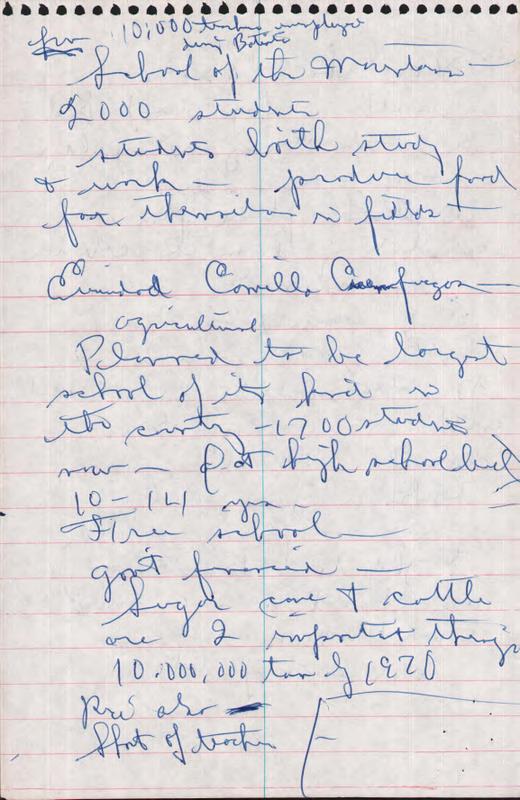 10,000 teachers unemployed
during Batista
School of the Mountains —
2000 students
students both study
& work — produce food
for themselves in fields —
Ciudad Camilo Cienfuegos —
agricultural
Planned to be largest
school of its kind in
the country — 1700 students
now — at high school level
10 - 14 yrs —
Free school —
gov't financed —
Sugar cane & cattle
are 2 important things
10,000,000 tons by 1970
Rice also —
Short of teachers